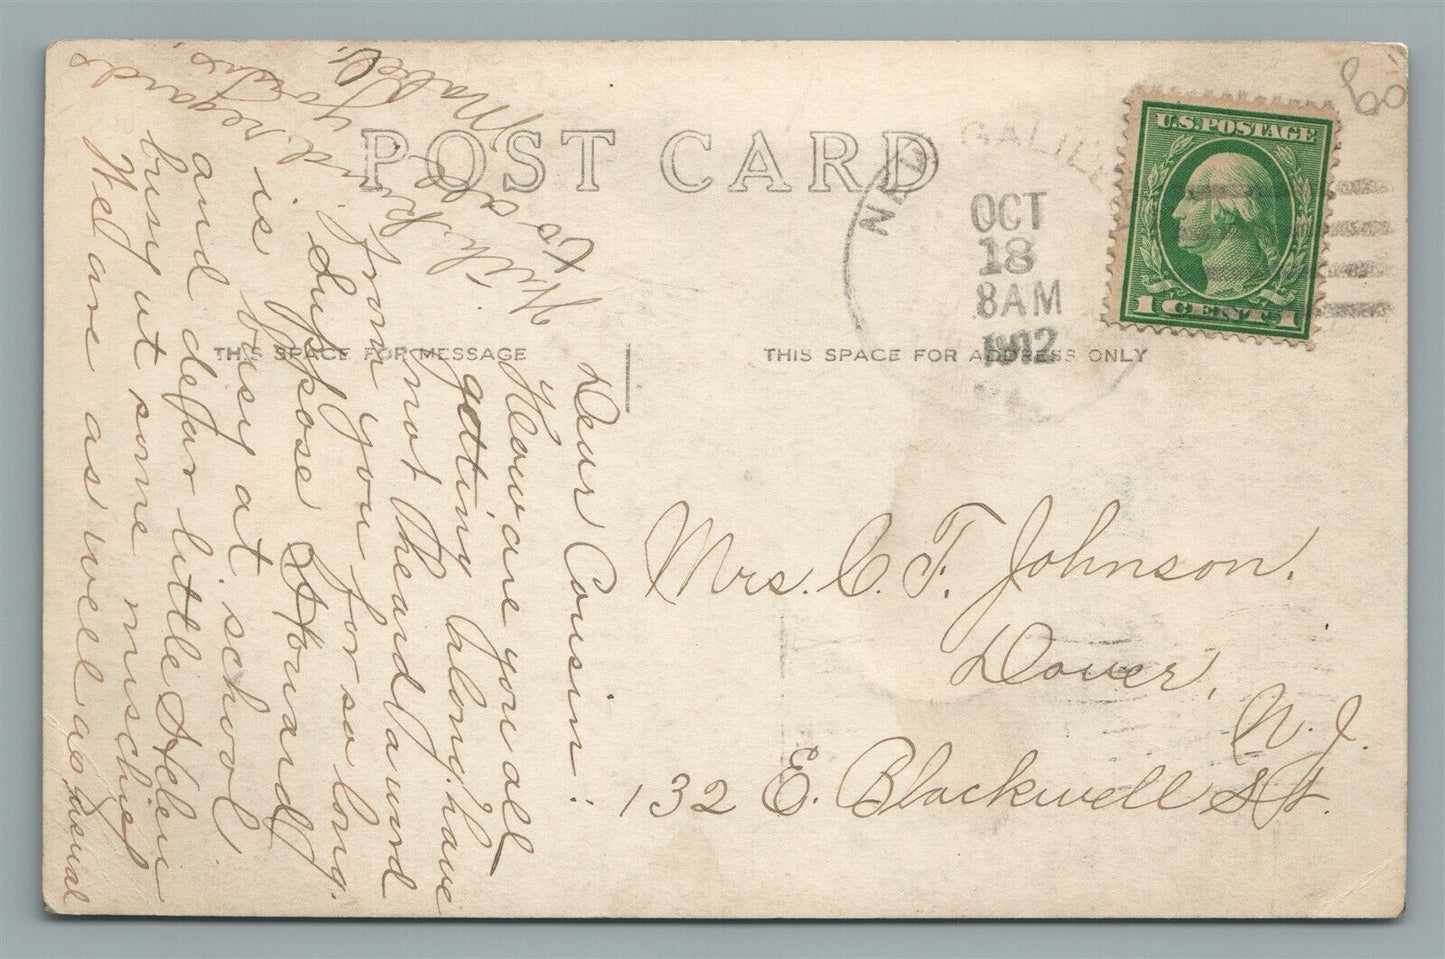 POST CARD
THIS SPACE FOR MESSAGE
THIS SPACE FOR ADDRESS ONLY
U.S.POSTAGE
1 CENTS 1
NEW GALILEE
OCT
18
8AM
1912
Dear Cousin:
How are you all
getting along. have
not heard a word
from you for so long.
I suppose Howard
is busy at school
and dear little Helen
busy at some mischief
Wel are as well as usual
With kind regards
to all yours,
Mabel C.
Mrs. C. F. Johnson.
Dover,
N. J.
132 E. Blackwell St.